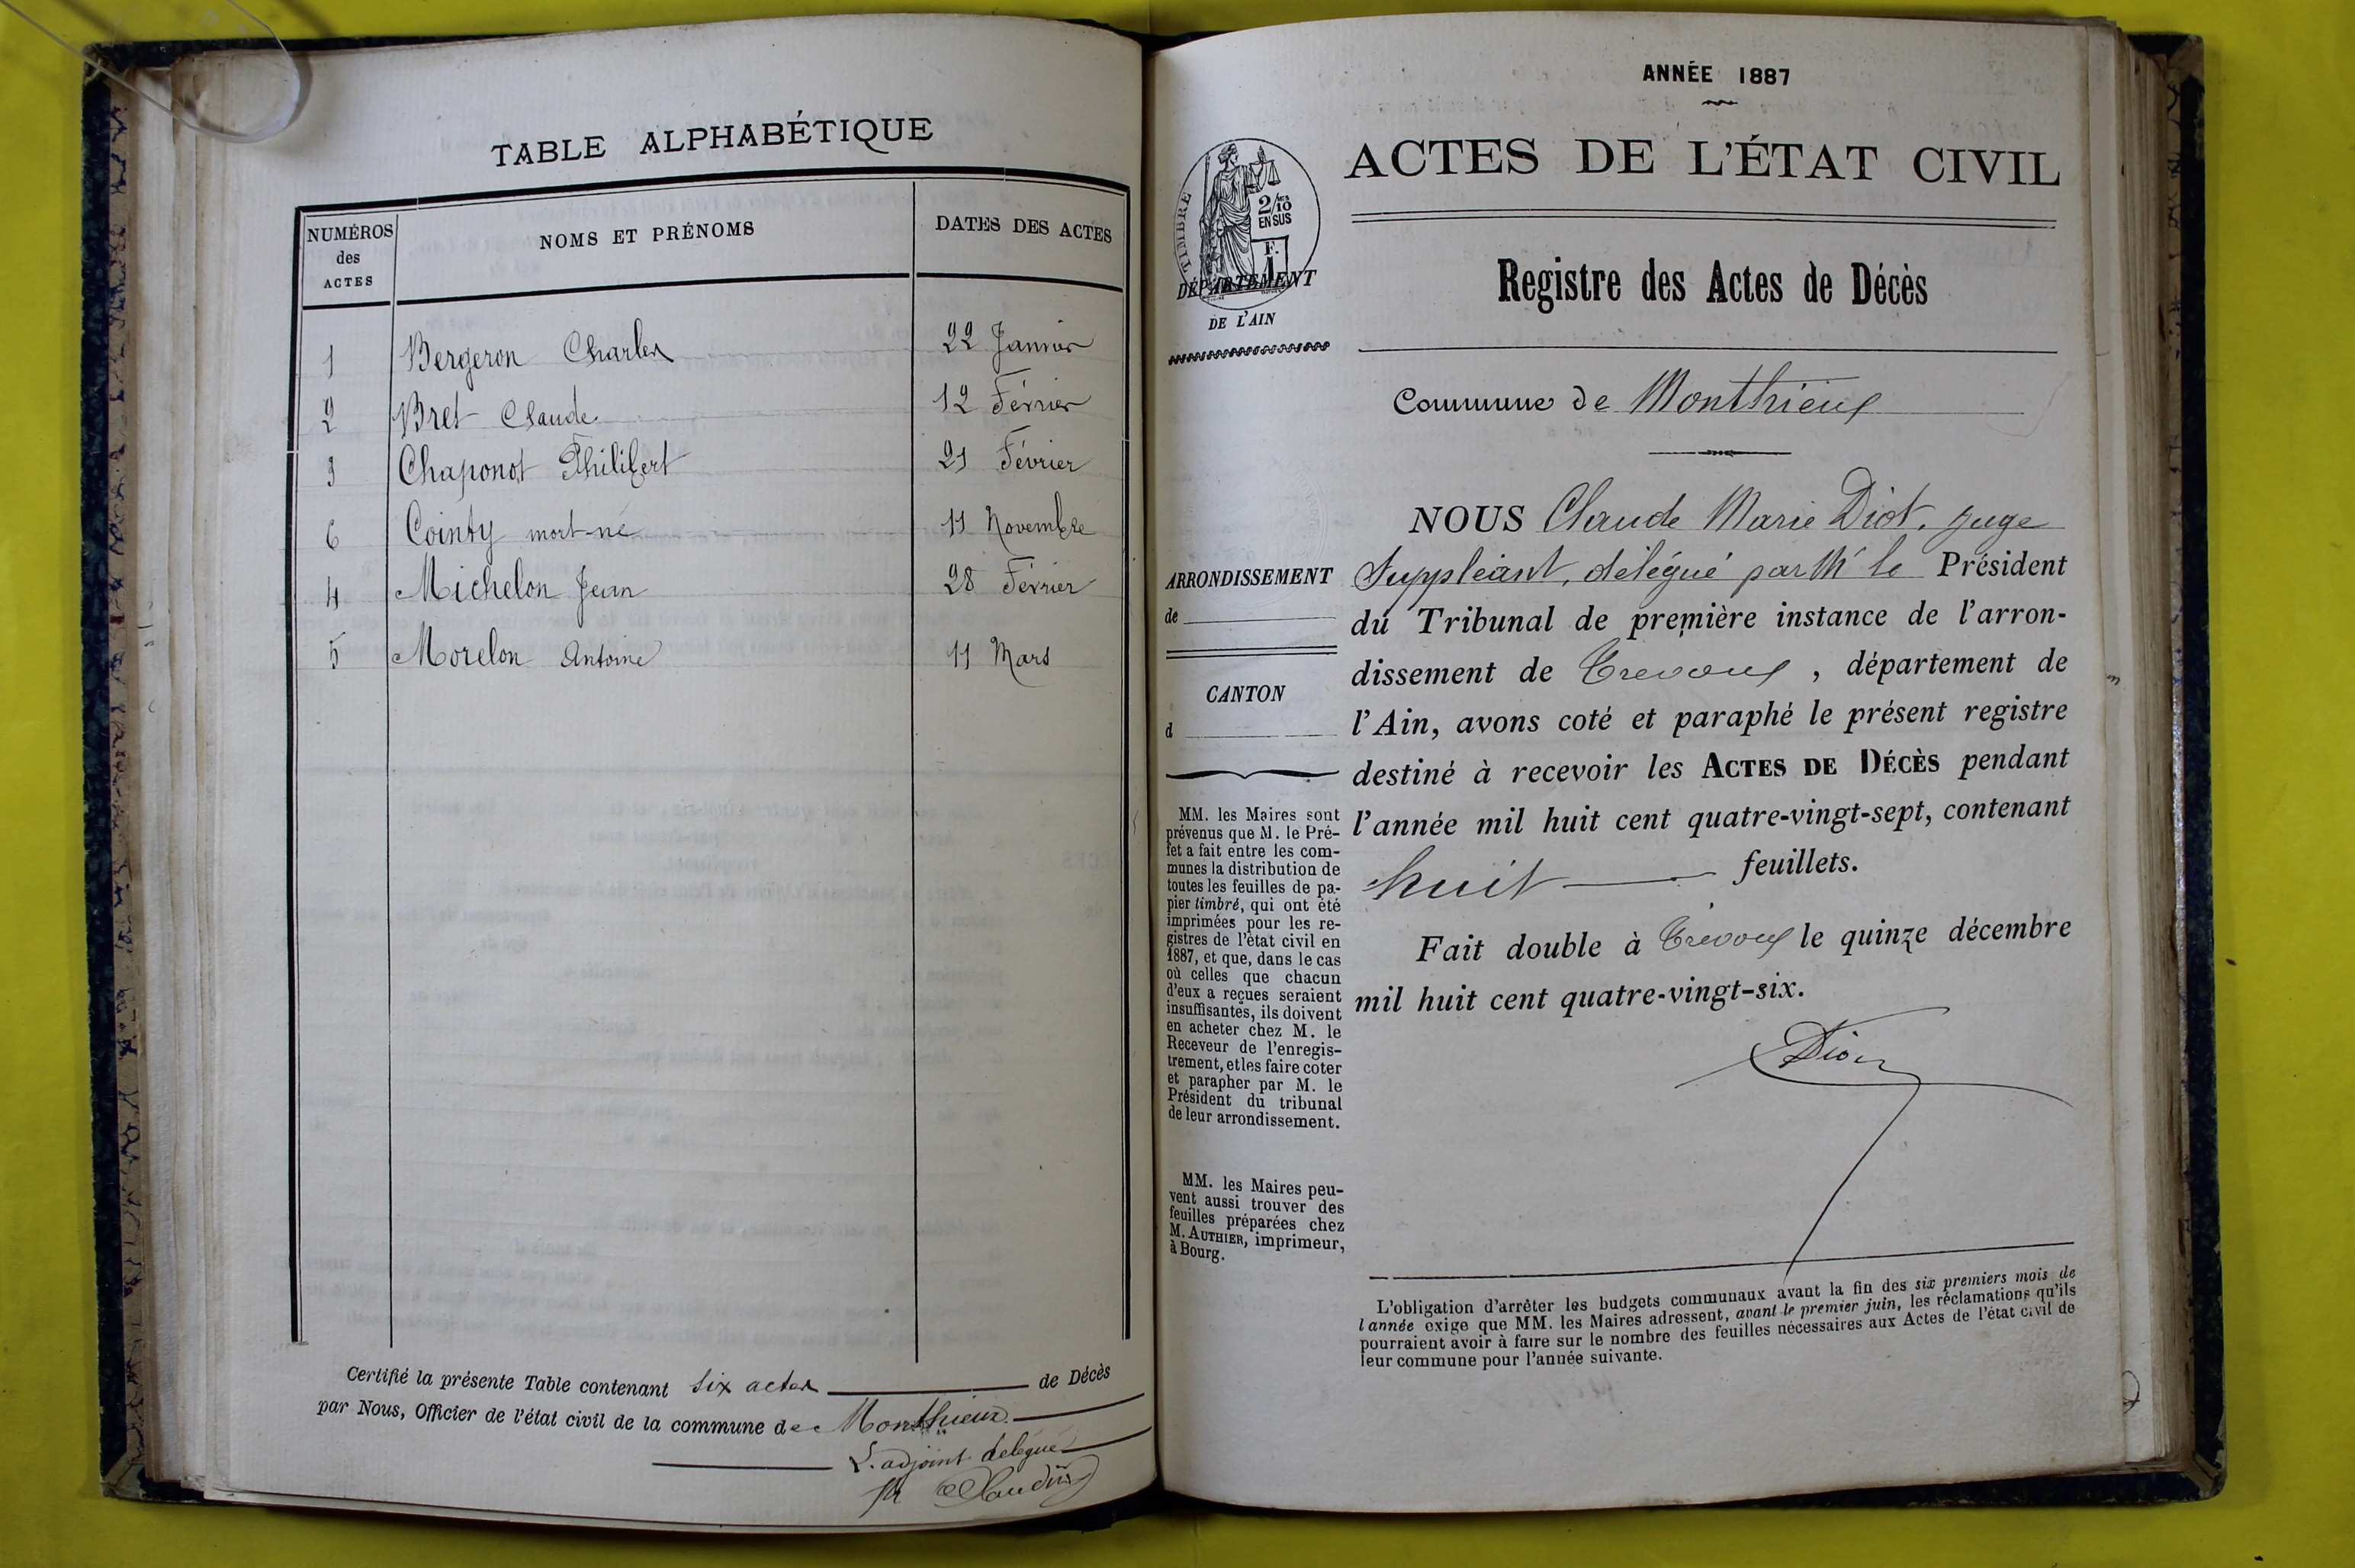 TABLE ALPHABÉTIQUE
NUMÉROS des ACTES
NOMS ET PRÉNOMS
DATES DES ACTES
1 Bergeron Charles 22 Janvier
2 Bret Claude 12 Février
3 Chaponot Philibert 21 Février
6 Cointy mort-né 11 Novembre
4 Michelon Jean 28 Février
5 Morelon Antoine 11 Mars
Certifié la présente Table contenant six actes de Décès
par Nous, Officier de l'état civil de la commune de Monthieux
L'adjoint délégué
ANNÉE 1887
ACTES DE L'ÉTAT CIVIL
TIMBRE
2/10
EN SUS
F.
1
DÉPARTEMENT
DE L'AIN
Registre des Actes de Décès
Commune de Monthieux
ARRONDISSEMENT
de
CANTON
d
MM. les Maires sont
prévenus que M. le Pré-
fet a fait entre les com-
munes la distribution de
toutes les feuilles de pa-
pier timbré, qui ont été
imprimées pour les re-
gistres de l'état civil en
1887, et que, dans le cas
où celles que chacun
d'eux a reçues seraient
insuffisantes, ils doivent
en acheter chez M. le
Receveur de l'enregis-
trement, et les faire coter
et parapher par M. le
Président du tribunal
de leur arrondissement.
MM. les Maires peu-
vent aussi trouver des
feuilles préparées chez
M. AUTHIER, imprimeur,
à Bourg.
NOUS Claude Marie Diot, juge
Suppléant, délégué par Mr le Président
du Tribunal de première instance de l'arron-
dissement de Trevoux, département de
l'Ain, avons coté et paraphé le présent registre
destiné à recevoir les ACTES DE DÉCÈS pendant
l'année mil huit cent quatre-vingt-sept, contenant
huit feuillets.
Fait double à Trévoux le quinze décembre
mil huit cent quatre-vingt-six.
Diot
L'obligation d'arrêter les budgets communaux avant la fin des six premiers mois de
l'année exige que MM. les Maires adressent, avant le premier juin, les réclamations qu'ils
pourraient avoir à faire sur le nombre des feuilles nécessaires aux Actes de l'état civil de
leur commune pour l'année suivante.